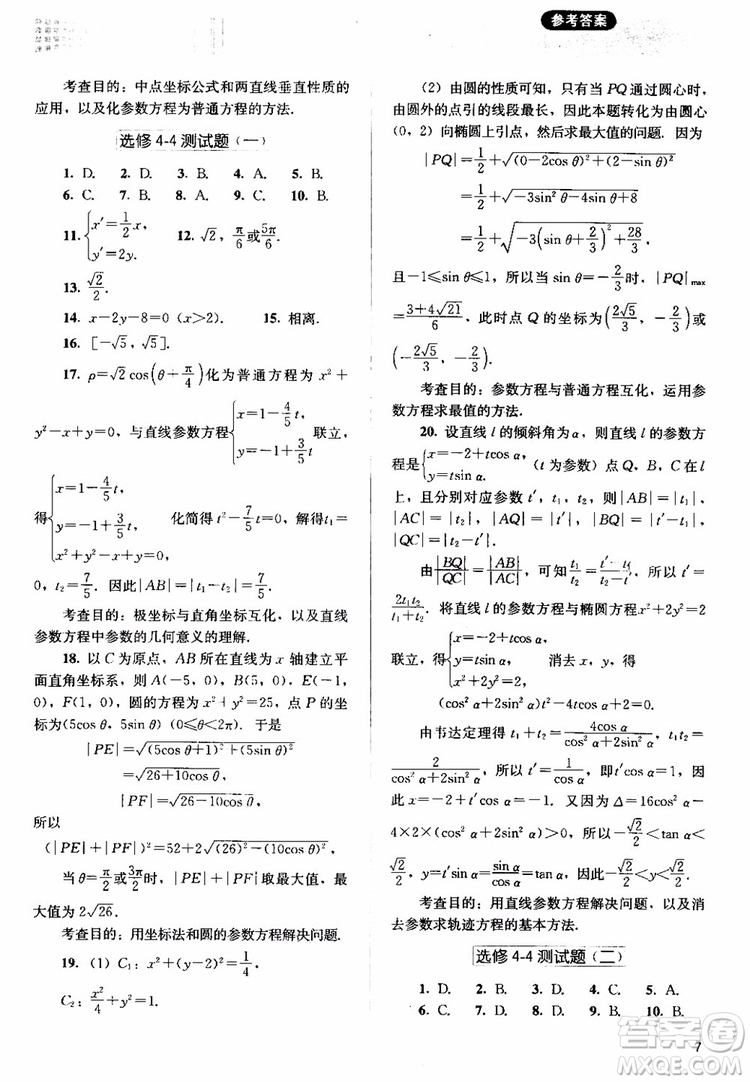 参考答案
考查目的:中点坐标公式和两直线垂直性质的
应用,以及化参数方程为普通方程的方法.
选修 4-4 测试题(一)
1. D. 2. D. 3. D. 4. D. 5. C.
6. C. 7. B. 8. A. 9. C. 10. B.
11. {x′=1/2 x, y′=2y. 12. √2, π/6或5π/6.
13. √2/2.
14. x-2y-8=0 (x>2). 15. 相离.
16. [-√5, √5].
17. ρ=√2cos(θ+π/4)化为普通方程为 x²+
y²-x+y=0,与直线参数方程{x=1-4/5 t, y=-1+3/5 t 联立,
得{x=1-4/5 t, y=-1+3/5 t, x²+y²-x+y=0, 化简得 t²-7/5 t=0,解得t₁=
0, t₂=7/5. 因此|AB|=|t₁-t₂|=7/5.
考查目的:极坐标与直角坐标互化,以及直线
参数方程中参数的几何意义的理解.
18. 以 C 为原点,AB 所在直线为 x 轴建立平
面直角坐标系,则 A(-5, 0), B(5, 0), E(-1,
0), F(1, 0),圆的方程为 x²+y²=25,设点 P 的坐标
为(5cos θ, 5sin θ) (0≤θ<2π). 于是
|PE|=√(5cos θ+1)²+(5sin θ)²
=√26+10cos θ,
|PF|=√26-10cos θ,
所以
(|PE|+|PF|)²=52+2√(26)²-(10cos θ)²,
当 θ=π/2或3π/2时,|PE|+|PF|取最大值,最
大值为 2√26.
考查目的:用坐标法和圆的参数方程解决问题.
19. (1) C₁: x²+(y-2)²=1/4.
C₂: x²/4+y²=1.
(2) 由圆的性质可知,只有当 PQ 通过圆心时,
由圆外的点引的线段最长,因此本题转化为由圆心
(0, 2) 向椭圆上引点,然后求最大值的问题. 因为
|PQ|=1/2+√(0-2cos θ)²+(2-sin θ)²
=1/2+√-3sin²θ-4sin θ+8
=1/2+√-3(sin θ+2/3)²+28/3
且-1≤sin θ≤1,所以当 sin θ=-2/3时,|PQ|max
=3+4√21/6,此时点 Q 的坐标为(2√5/3, -2/3)或
(-2√5/3, -2/3).
考查目的:参数方程与普通方程互化,运用参
数方程求最值的方法.
20. 设直线 l 的倾斜角为 α,则直线 l 的参数方
程是{x=-2+tcos α, y=tsin α (t 为参数) 点 Q、B、C 在 l
上,且分别对应参数 t′, t₁, t₂,则|AB|=|t₁|,
|AC|=|t₂|, |AQ|=|t′|, |BQ|=|t′-t₁|,
|QC|=|t₂-t′|.
由|BQ|/|QC|=|AB|/|AC|,可知t₁/t₂= ,所以 t′=
2t₁t₂/t₁+t₂. 将直线 l 的参数方程与椭圆方程
联立,得{x=-2+tcos α, y=tsin α, x²+2y²=2 消去 x, y,得
(cos²α+2sin²α)t²-4tcos α+2=0,
由韦达定理得 t₁+t₂=4cos α/cos²α+2sin²α, t₁t₂=
2/cos²α+2sin²α,所以 t′=1/cos α,即t′cos α=1,因
此 x=-2+t′cos α=-1. 又因为 Δ=16cos²α-
4×2×(cos²α+2sin²α)>0,所以-√2/2<tan α<
√2/2, y=t′sin α=sin α/cos α=tan α,故-√2/2<y<√2/2.
考查目的:用直线参数方程解决问题,以及消
去参数求轨迹方程的基本方法.
选修 4-4 测试题(二)
1. D. 2. B. 3. D. 4. C. 5. A.
6. C. 7. D. 8. D. 9. B. 10. B.
7
答案圈